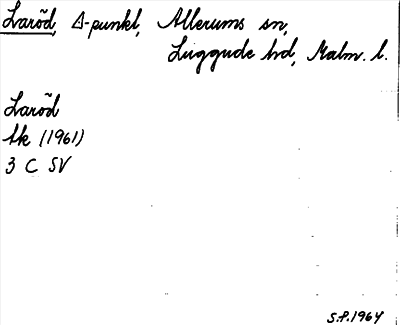 Laröd, Δ-punkt, Allerums sn,
Luggude hd, Malm. l.
Laröd
tk (1961)
3 C SV
S.P. 1964